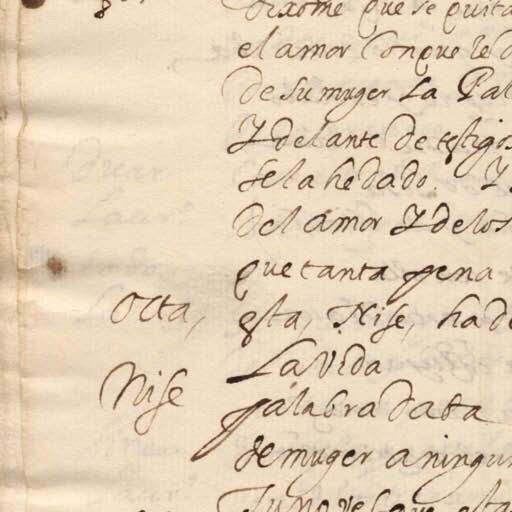 dixome que se quita
el amor Conque le d
de su muger La Pal
Y delante de testigos
se la he dado. Y
del amor Y delos
que tanta pena
Octa, esta, Nise, ha de
La Vida
Nise palabra data
de muger a ningun